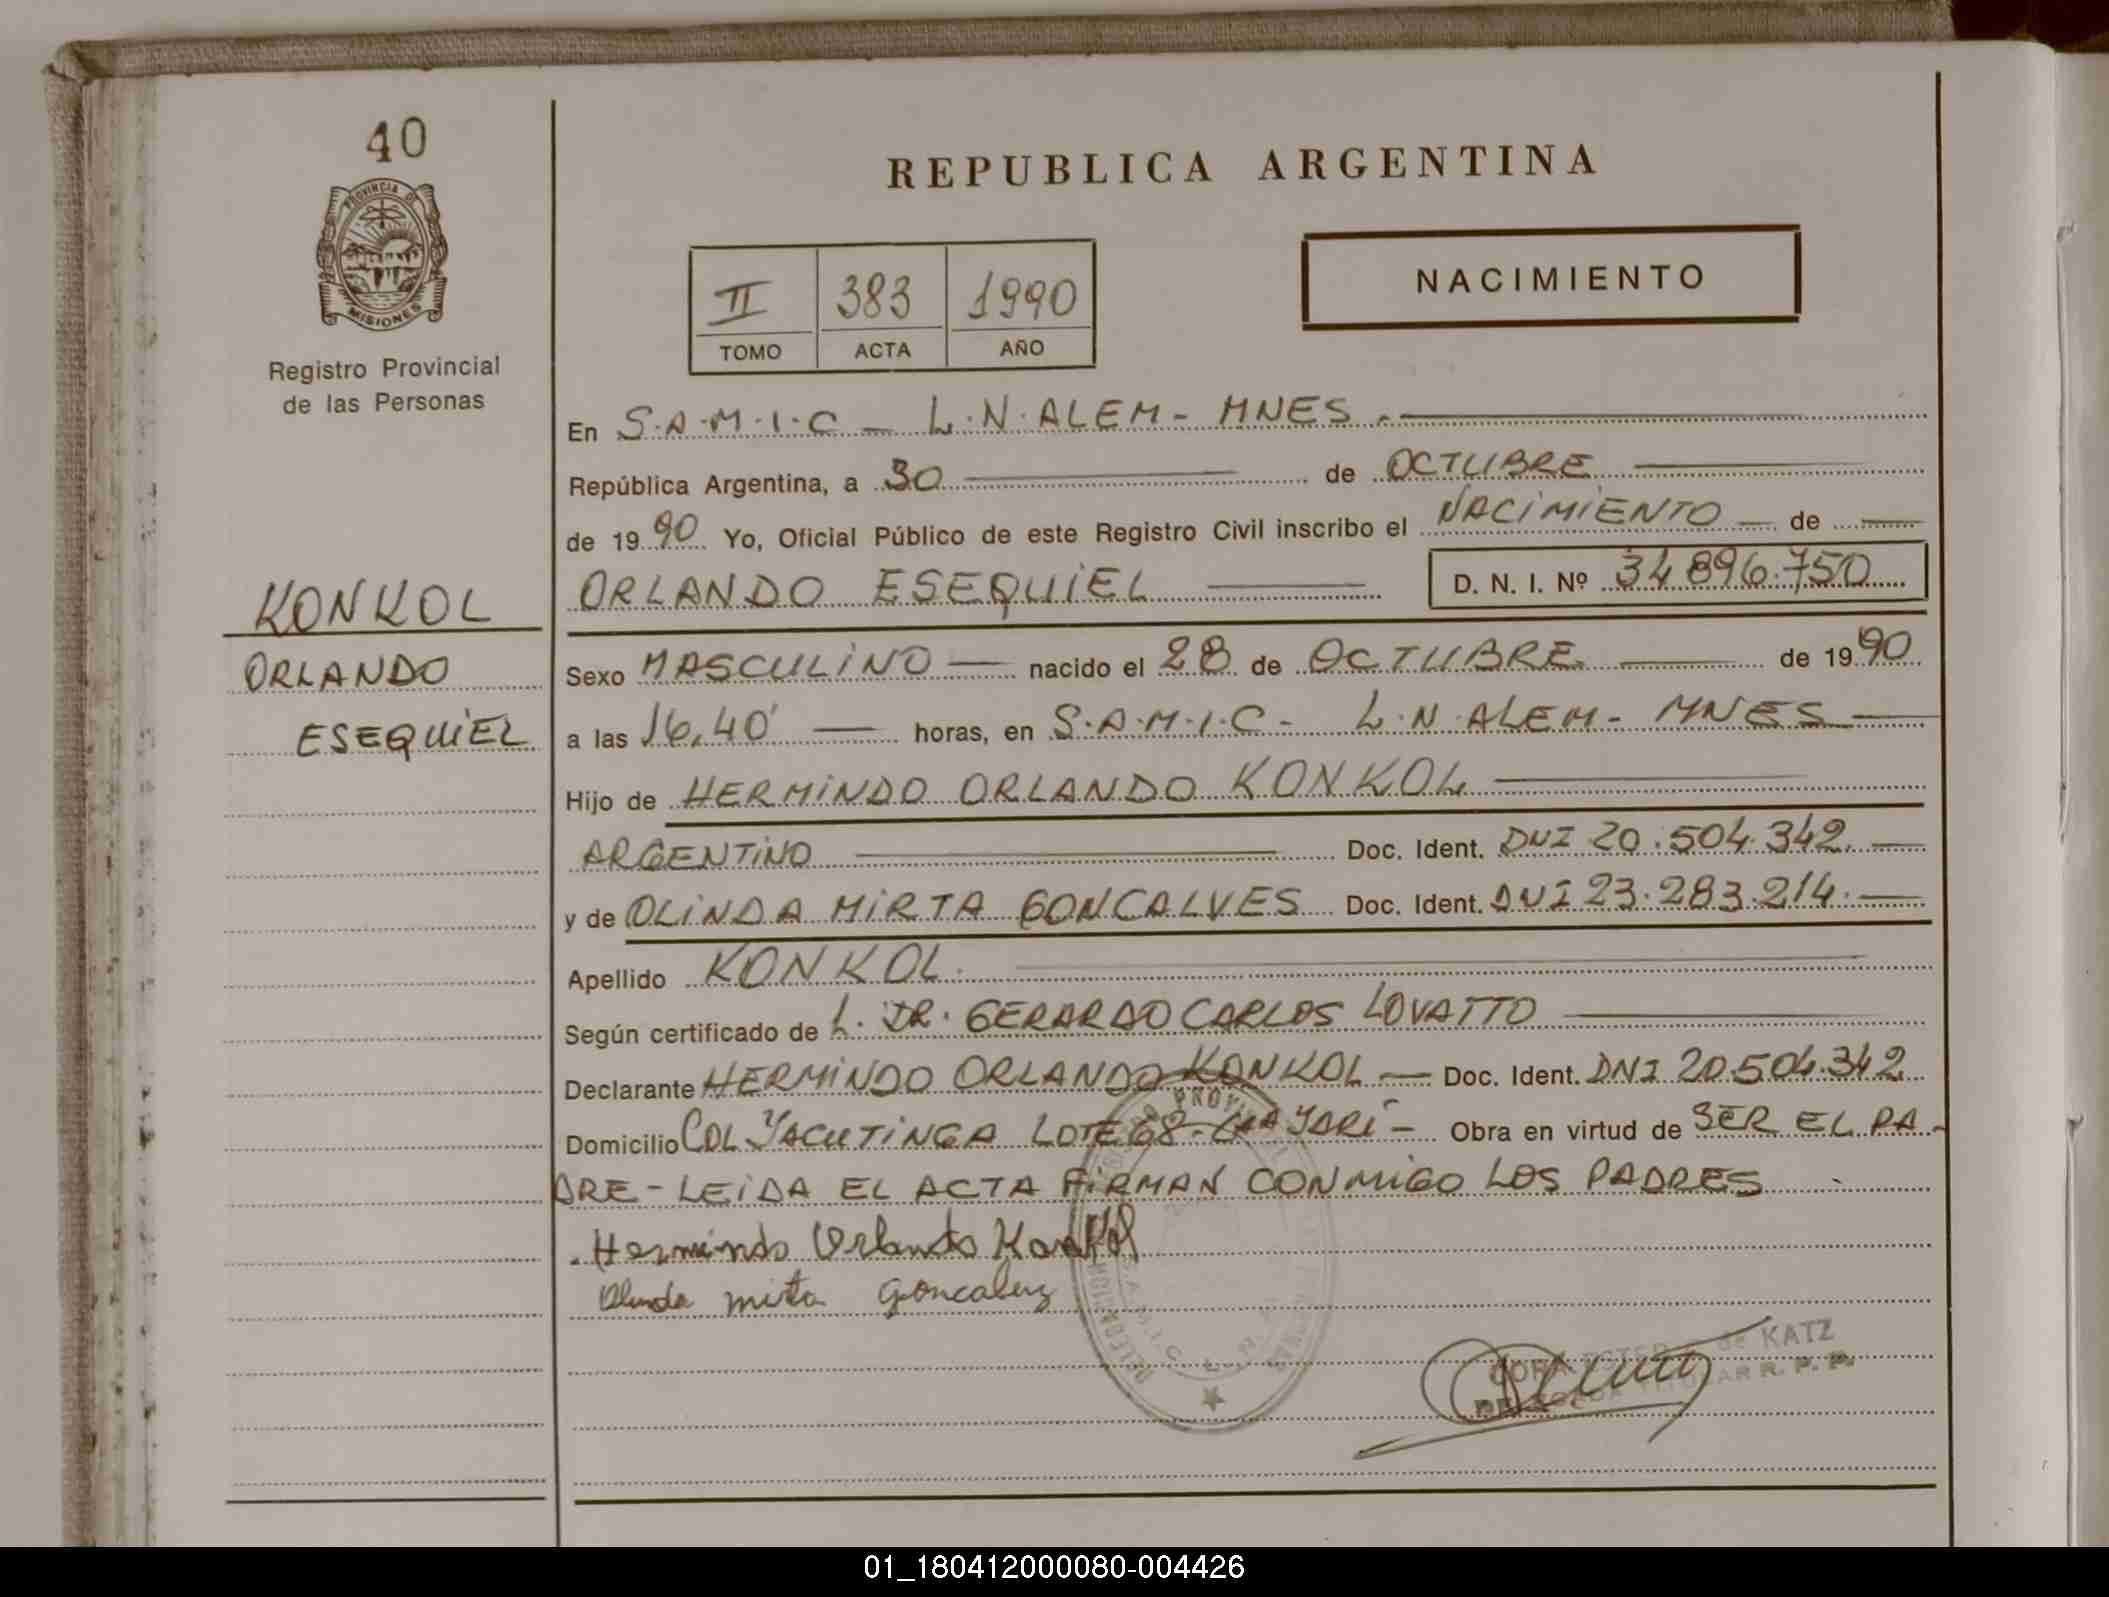 40
PROVINCIA DE
MISIONES
Registro Provincial
de las Personas
REPUBLICA ARGENTINA
NACIMIENTO
II 383 1990
TOMO ACTA AÑO
En S.A.M.I.C - L.N.ALEM - MNES.
República Argentina, a 30 de OCTUBRE
de 1990 Yo, Oficial Público de este Registro Civil inscribo el NACIMIENTO de
ORLANDO ESEQUIEL D. N. I. Nº 34896.750
KONKOL
ORLANDO
ESEQUIEL
Sexo MASCULINO nacido el 28 de OCTUBRE de 1990
a las 16,40' horas, en S.A.M.I.C - L.N.ALEM - MNES
Hijo de HERMINDO ORLANDO KONKOL
ARGENTINO Doc. Ident. DNI 20.504.342
y de OLINDA MIRTA GONCALVES Doc. Ident. DNI 23.283.214.
Apellido KONKOL.
Según certificado de L. DR. GERARDO CARLOS LOVATTO
Declarante HERMINDO ORLANDO KONKOL Doc. Ident. DNI 20.504.342
Domicilio COL YACUTINGA LOTE 68 - Obra en virtud de SER EL PA-
DRE - LEIDA EL ACTA FIRMAN CONMIGO LOS PADRES
Hermindo Orlando Konkol
Olinda mirta Goncalvez
de KATZ
TITULAR R. P. P.
01_180412000080-004426